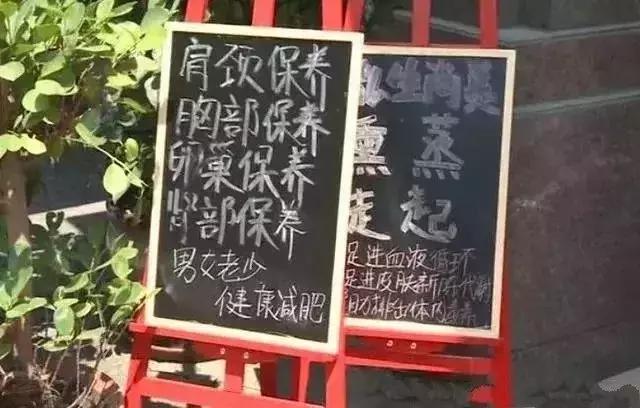 肩颈保养
胸部保养
卵巢保养
肾部保养
男女老少
健康减肥
生尚美
熏蒸
走起
促进血液循环
促进皮肤新陈代谢
助排出体内毒素